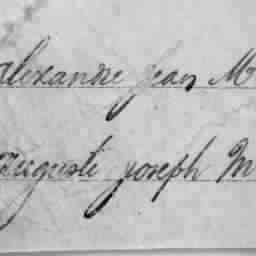 alexandre jean M
auguste joseph M